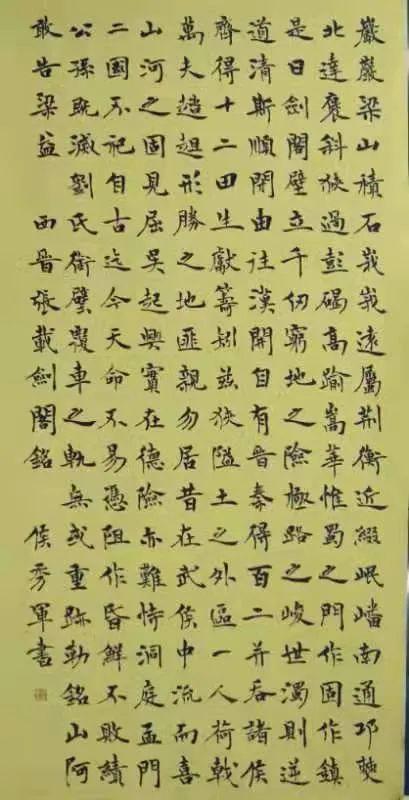 巖巖梁山積石峩峩遠屬荊衡近綴岷嶓南通邛僰
北達褒斜狹過彭碣高踰嵩華惟蜀之門作固作鎮
是曰劍閣壁立千仞窮地之險極路之峻世濁則逆
道清斯順閉由往漢開自有晉秦得百二并吞諸侯
齊得十二田生獻籌矧茲狹隘土之外區一人荷戟
萬夫趑趄形勝之地匪親勿居昔在武侯中流而喜
山河之固見屈吳起興實在德險亦難恃洞庭孟門
二國不祀自古迄今天命不易憑阻作昏鮮不敗績
公孫既滅劉氏銜璧覆車之軌無或重跡勒銘山阿
敢告梁益 西晉張載劍閣銘 侯秀軍書